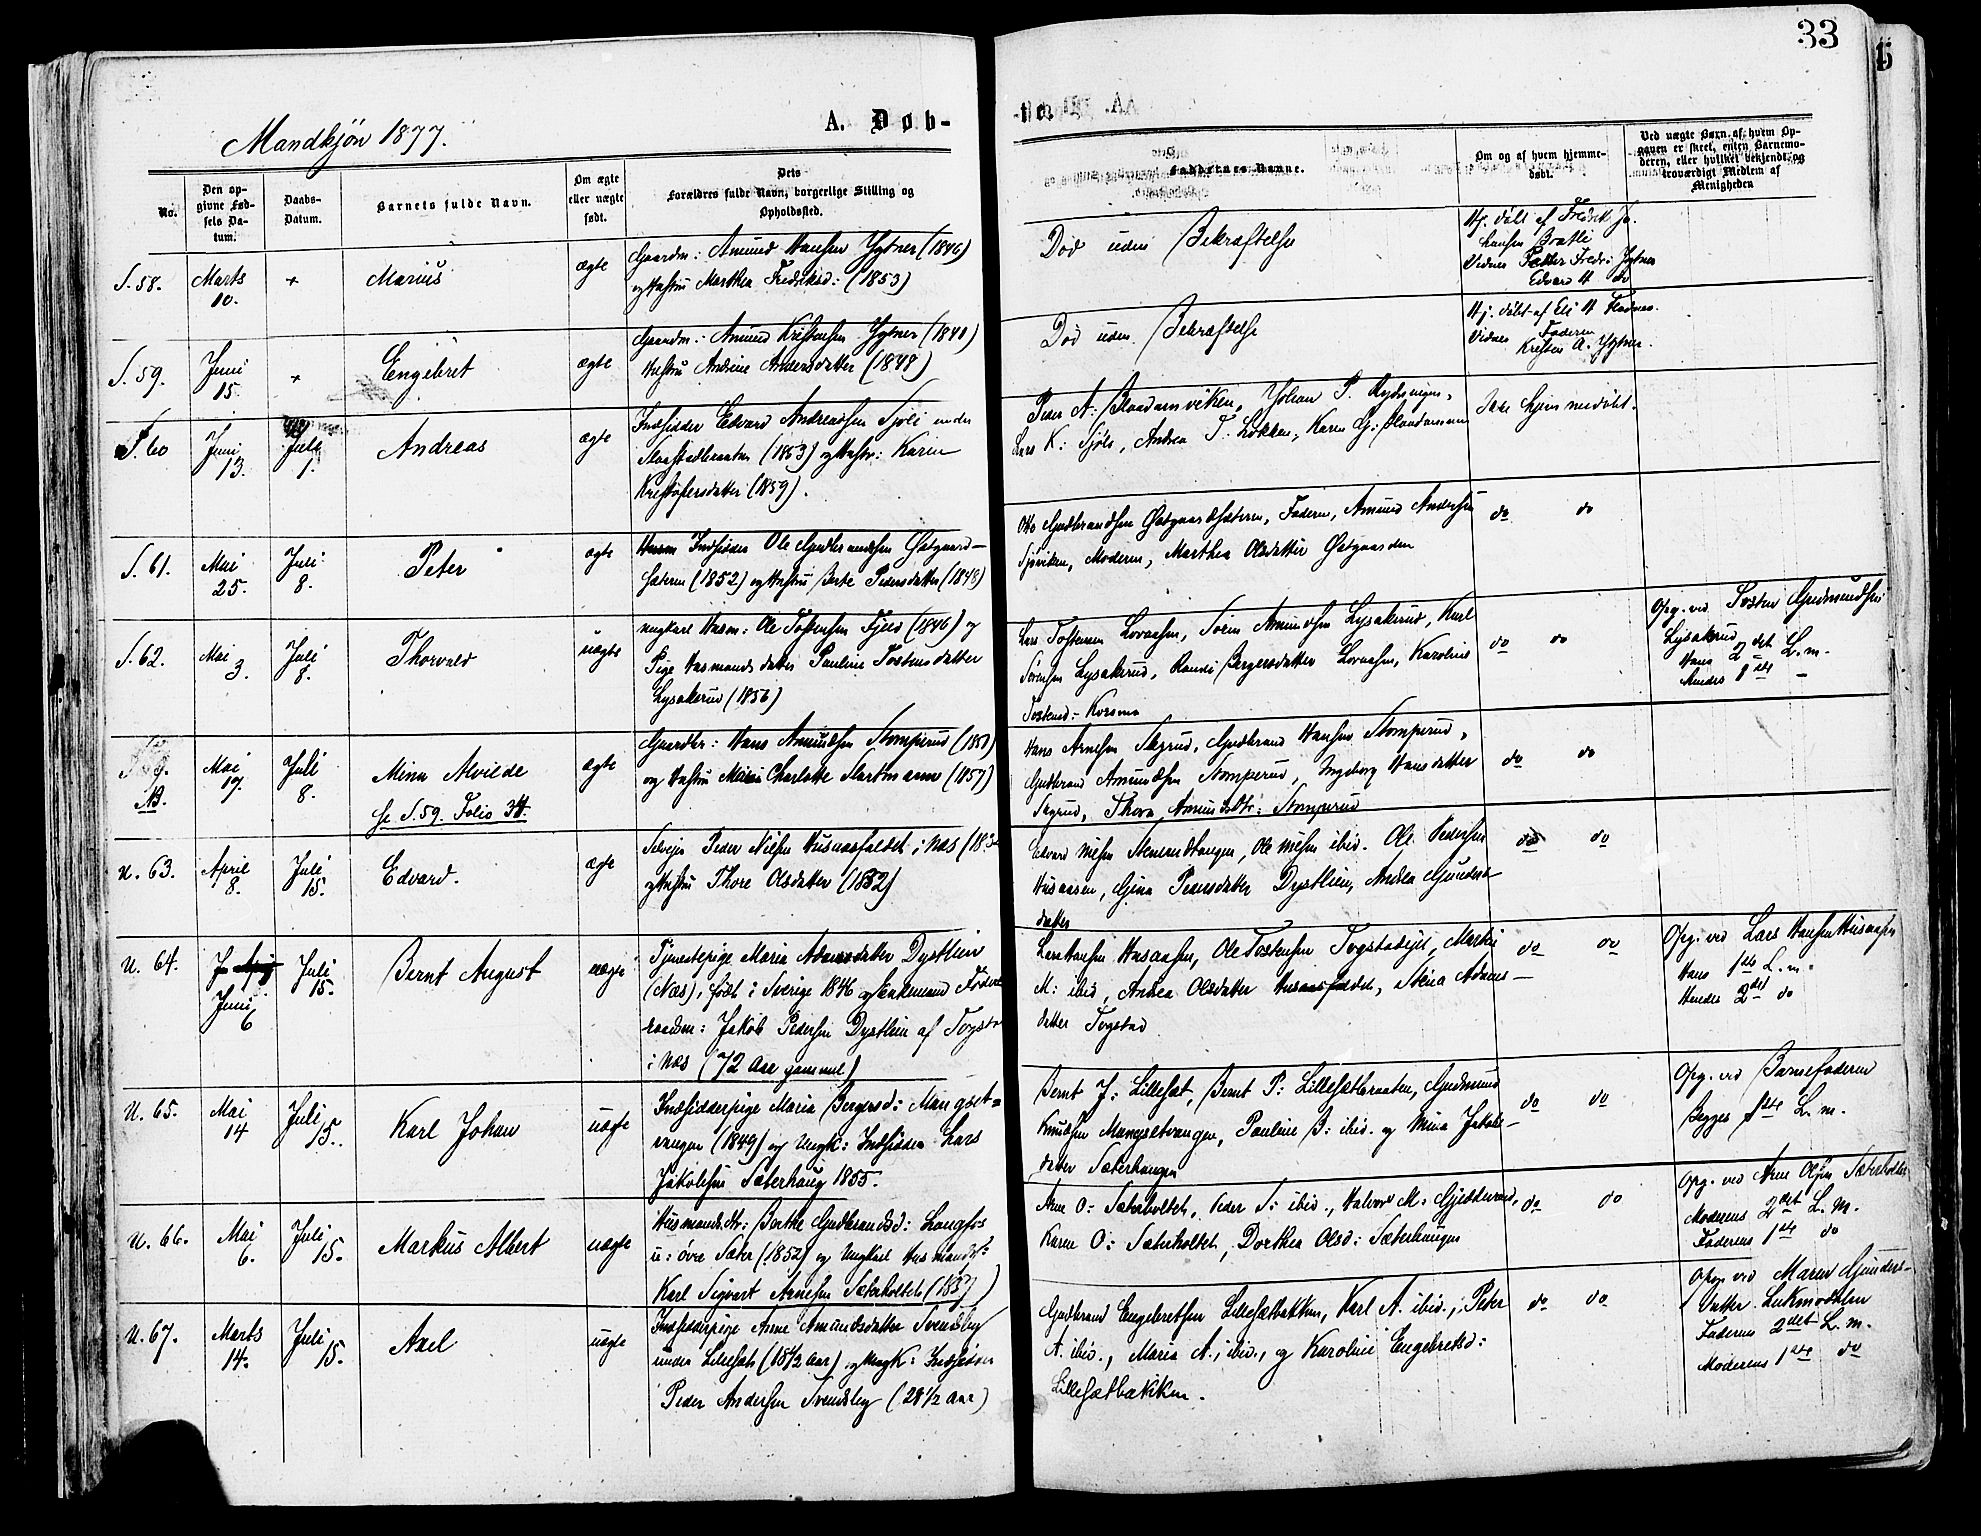 33
Mandkjøn 1877.
A. Døb-
-te.
No.
Den op-
givne Fød-
sels Da-
tum.
Daabs-
Datum.
Barnets fulde Navn.
Om ægte
eller uægte
født.
Dets
Forældres fulde Navn, borgerlige Stilling og
Opholdssted.
Faddernes Navne.
Om og af hvem hjemme-
døbt.
Ved uægte Børn, af hvem Op-
gaven er skeet, enten Barnemo-
deren, eller hvilket bekjendt, og
troværdigt Medlem af
Menigheden
S. 58.
Marts
10.
+
Marius
ægte
Gaardm: Amund Hansen Hytner (1846)
og Hustru Marthea Fredriksd: (1853)
Død uden Bekræftelse
Hj. døbt af Fredrik Jo-
hansen Bratli
Vidner Fredr: Hytner
Edvard H do
S. 59.
Juni
15.
+
Engebret
ægte
Gaardm: Amund Kristensen Hytner (1840)
Hustru Andrine Andersdatter (1848)
Død uden Bekræftelse
Hj. døbt af Eli H Flodnes.
Vidner Faderen
Kristen A. Hytner.
S. 60
Juni
13.
Juli
1.
Andreas
ægte
Indsidder Edvard Andreassen Sjöli under
(1853) og Hustr: Karen
Kristofersdatter (1859).
Peder A: Johan P.
Lars K: Sjöli, Andrea T. Løkken, Karen G:
Ikke hjemmedøbt.
S. 61.
Mai
25.
Juli
8.
Peter
ægte
Indsidder Ole Gudbrandsen Østgaard-
sæteren (1852) og Hustru Berte Pedersdatter (1848)
Otto Gudbrandsen Østgaardsæteren, Faderen, Amund Andersen
Sjöviken, Moderen, Marthea Olsdatter Østgaarden
do do
S. 62.
Mai
3.
Juli
8.
Thorvald
uægte
Ungkarl Husm: Ole Tostensen Fjeld (1846) og
Pige Husmandsdatter Pauline Tostensdatter
Lysakerud (1856)
Lars Tostensen Lovaasen, Søren Amundsen Lysakerud, Karl
Sørensen Lysakerud, Randi Bergersdatter Lovaasen, Karoline
Tostensd: Korsmo
do do
Opg. ved Tosten Gudmundsen
Lysakrud
Hans 2det L.m.
Hendes 1ste -
NB.
Mai
17.
Juli
8.
Mina Alvilde
se S. 59. Folio 34.
ægte
Gaardbr: Hans Amundsen Stomperud (1850)
og Hustru Maria Charlotte Hartmann (1857)
Hans Arnesen Skgrud, Gudbrand Hansen Stomperud,
Gudbrand Amundsen Stomperud, Ingeborg Hansdatter
Skgrud, Thora Amundsdtr: Stomperud
do do
U. 63.
April
8.
Juli
15.
Edvard.
ægte
Selvejr Peder Nilsen Husaasfaldet i Næs
og Hustru Thore Olsdatter (1832)
Edvard Nilsen Stensrudtangen, Ole Nilsen ibid. Ole Pedersen
Husaasen, Gina Pedersdatter Dystlien, Andrea Gunders-
datter
do do
U. 64.
Juni
6
Juli
15.
Bernt August
uægte
Tjenestepige Maria Adamsdatter Dystlien
(Næs), født i Sverige 1846 og Enkemand Føde-
raadsm: Jakob Pedersen Dystlien af Togsta
i Næs (72 Aar gammel)
Lars Hansen Husaasen, Ole Tostensen Togstadeje, Martin
M: ibid, Andrea Olsdatter Husaasfaldet, Stina Adams-
datter Togstad
do do
Opg. ved Lars Hansen Husaasen
Hans 1ste L.m.
Hendes 2det do
U. 65.
Mai
14
Juli
15.
Karl Johan
uægte
Indsidderpige Maria Bergersd: Mangset-
vangen (1849) og Ungk: Indsidder Lars
Jakobsen Sæterhaug 1855.
Bernt J: Lillesæt, Bernt P: Lillesætbraaten, Gudmund
Knudsen Mangsetvangen, Pauline B: ibid. og Mina Jakobs-
datter Sæterhaugen
do do
Opg. ved Barnefaderen
Begges 1ste L.m.
U. 66.
Mai
6.
Juli
15.
Markus Albert
uægte
Husmandsdtr: Berthe Gudbrandsd: Langfos
u: övre Sæter (1852) og Ungkarl Husmands:
Karl Sigvart Arnesen Sæterholtet (1857)
Arne O: Sæterholtet, Peder S: ibid., Halvor M: Gjedderud,
Karen O: Sæterholtet, Dorthea Olsd: Sæterhaugen
do do
Opg. ved Arne Olsen Sæterholtet
Moderens 2det L.M.
Faderens 1ste do
U. 67.
Marts
14.
Juli
15.
Axel
uægte
Indsidderpige Anne Amundsdatter Svendsby
under Lillesæt (18½ Aar) og Ungk: Indsidder
Peder Andersen Svendsby (28½ Aar)
Gudbrand Engebretsen Lillesætbakken, Karl A. ibid., Peter
A. ibid., Maria A., ibid., og Karoline Engebretsd:
Lillesætbakken.
do do
Opg. ved Maren Gunders-
datter Lukmodalen
Faderens 2det L.m.
Moderens 1ste do